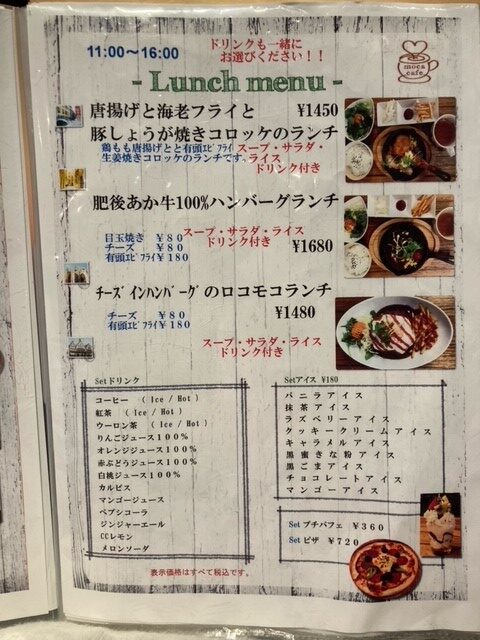 11:00～16:00
ドリンクも一緒に
お選びください！！
moca
cafe
- Lunch menu -
唐揚げと海老フライと ¥1450
豚しょうが焼きコロッケのランチ
鶏もも唐揚げとと有頭ｴﾋﾞﾌﾗｲ
生姜焼きコロッケのランチです。
スープ・サラダ・
ライス
ドリンク付き
肥後あか牛100%ハンバーグランチ
目玉焼き ￥８０
チーズ ￥８０
有頭ｴﾋﾞﾌﾗｲ￥１８０
スープ・サラダ・ライス
ドリンク付き
¥1680
ﾁｰｽﾞｲﾝﾊﾝﾊﾞｰｸﾞのロコモコランチ
チーズ ￥８０
有頭ｴﾋﾞﾌﾗｲ￥１８０
¥1480
スープ・サラダ・ライス
ドリンク付き
Setドリンク
コーヒー （Ice / Hot）
紅茶 （Ice / Hot）
ウーロン茶 （Ice / Hot）
りんごジュース１００％
オレンジジュース１００％
赤ぶどうジュース１００％
白桃ジュース１００％
カルピス
マンゴージュース
ペプシコーラ
ジンジャーエール
CCレモン
メロンソーダ
Setアイス ¥180
バニラアイス
抹茶アイス
ラズベリーアイス
クッキークリームアイス
キャラメルアイス
黒蜜きな粉アイス
黒ごまアイス
チョコレートアイス
マンゴーアイス
Set プチパフェ ￥３６０
Set ピザ ￥７２０
表示価格はすべて税込です。